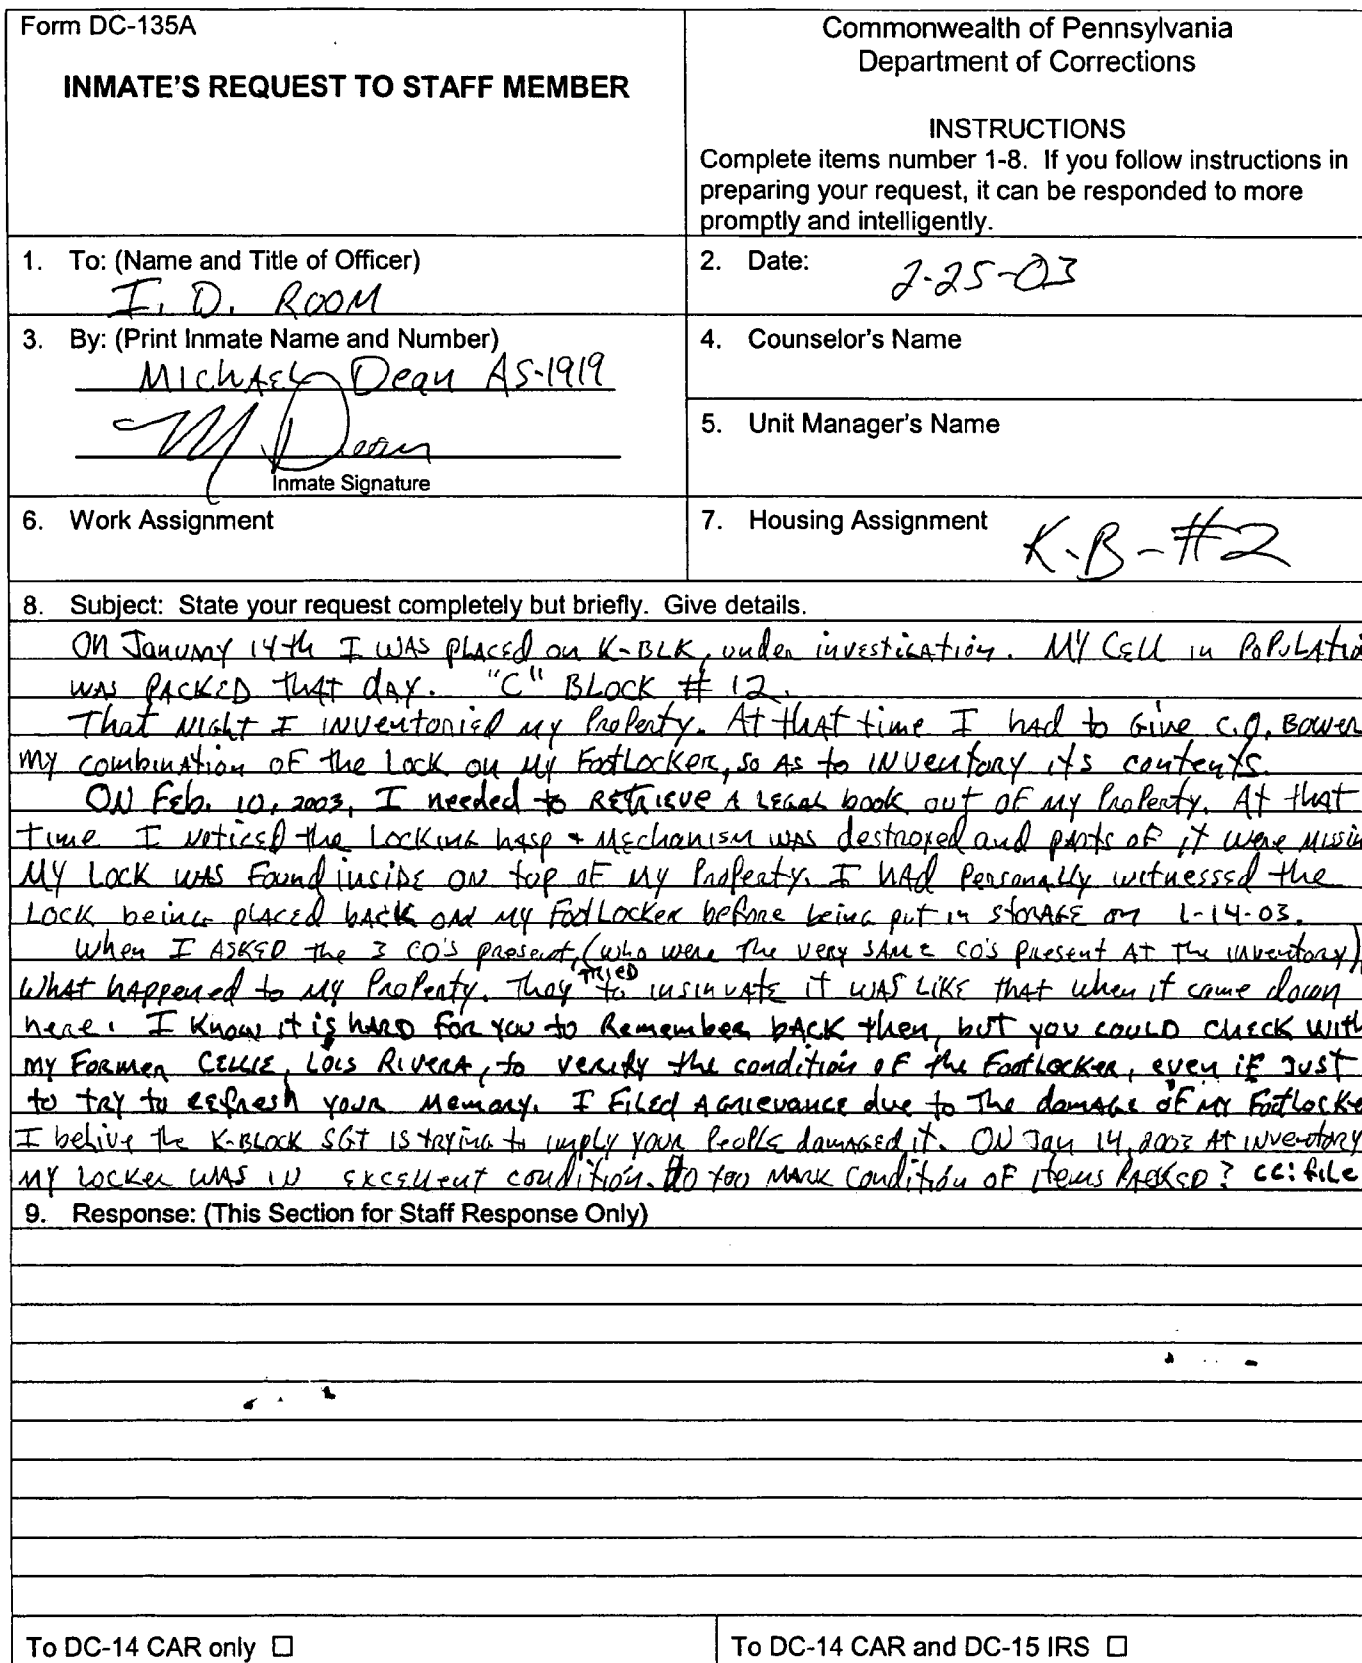 Form DC-135A
INMATE'S REQUEST TO STAFF MEMBER
Commonwealth of Pennsylvania
Department of Corrections
INSTRUCTIONS
Complete items number 1-8. If you follow instructions in
preparing your request, it can be responded to more
promptly and intelligently.
1. To: (Name and Title of Officer)
I.D. ROOM
2. Date:
2-25-03
3. By: (Print Inmate Name and Number)
MICHAEL Dean AS-1919
M Dean
Inmate Signature
4. Counselor's Name
5. Unit Manager's Name
6. Work Assignment
7. Housing Assignment
K-B-#2
8. Subject: State your request completely but briefly. Give details.
ON January 14th I WAS PLACED on K-BLK, under investigation. MY CELL in POPULATIO
WAS PACKED THAT dAY. "C" BLOCK # 12.
That NIGHT I INVENTORIED my Property. At that time I had to Give C.O. BOWER
my combination OF the Lock on my FootLocker, so As to INVENTORY its contents.
ON Feb. 10, 2003, I needed to RETRIEVE A LEGAL book out OF my Property. At that
time I NOTICED the Locking hasp + MEchanism was destroyed and parts of it were missin
MY LOCK WAS Found inside ON top OF my Property. I HAD Personally witnessed the
LOCK being placed back on my FootLocker before being put in STORAGE on 1-14-03.
When I ASKED the 3 CO'S present, (who were the very SAME CO'S present At the inventory)
What happened to my Property. They TRIED to insinuate it WAS LIKE that when it came down
here. I Know it is HARD for you to Remember bACK then, but you COULD CHECK With
my Former CELLIE, LOIS RIVERA, to verify the condition of the FootLocker, even if Just
to try to refresh your Memory. I Filed A Grievance due to the damage of my FootLocke
I behive the K-BLOCK SGT is trying to imply your People damaged it. ON Jan 14, 2003 At inventory
MY LOCKER WAS IN EXCELLENT condition. Do you MARK Condition OF items PACKED? CC: file
9. Response: (This Section for Staff Response Only)
To DC-14 CAR only ☐
To DC-14 CAR and DC-15 IRS ☐